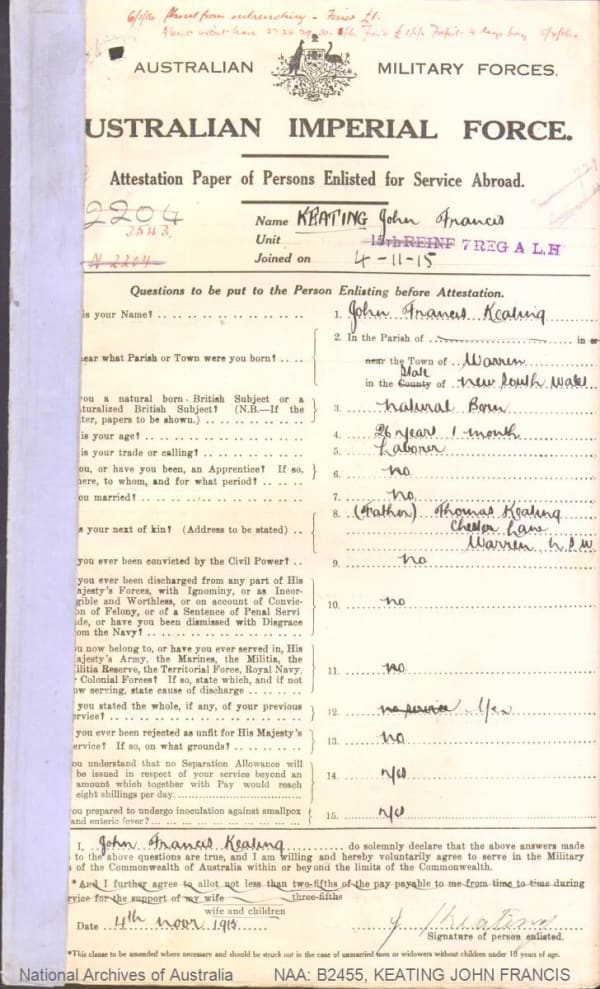 6/1/16 Absent from entrenching - Fined £1.
AUSTRALIAN MILITARY FORCES.
USTRALIAN IMPERIAL FORCE.
Attestation Paper of Persons Enlisted for Service Abroad.
2204
3543.
N 2204
Name KEATING John Francis
Unit 15th REINF 7 REG A L.H
Joined on 4-11-15
Questions to be put to the Person Enlisting before Attestation.
is your Name? 1. John Francis Keating
2. In the Parish of in or
ear what Parish or Town were you born? near the Town of Warren
State
in the County of New South Wales
you a natural born British Subject or a
turalized British Subject? (N.B.—If the
ter, papers to be shown.) 3. Natural Born
is your age? 4. 26 years 1 month
is your trade or calling? 5. Laborer
ou, or have you been, an Apprentice? If so,
here, to whom, and for what period? 6. no
you married? 7. no
s your next of kin? (Address to be stated) 8. (Father) Thomas Keating
Lane
Warren N.S.W
you ever been convicted by the Civil Power? 9. no
you ever been discharged from any part of His
ajesty's Forces, with Ignominy, or as Incor-
gible and Worthless, or on account of Convic-
on of Felony, or of a Sentence of Penal Servi
de, or have you been dismissed with Disgrace
om the Navy? 10. no
ou now belong to, or have you ever served in, His
ajesty's Army, the Marines, the Militia, the
ilitia Reserve, the Territorial Force, Royal Navy,
Colonial Forces? If so, state which, and if not
ow serving, state cause of discharge 11. no
you stated the whole, if any, of your previous
ervice? 12. no service Yes
you ever been rejected as unfit for His Majesty's
ervice? If so, on what grounds? 13. no
ou understand that no Separation Allowance will
be issued in respect of your service beyond an
amount which together with Pay would reach
eight shillings per day. 14. yes
you prepared to undergo inoculation against smallpox
and enteric fever? 15. yes
I, John Francis Keating do solemnly declare that the above answers made
to the above questions are true, and I am willing and hereby voluntarily agree to serve in the Military
of the Commonwealth of Australia within or beyond the limits of the Commonwealth.
*And I further agree to allot not less than two-fifths of the pay payable to me from time to time during
three-fifths
rvice for the support of my wife
wife and children
Date 4th Novr 1915
J Keating
Signature of person enlisted.
*This clause to be amended where necessary and should be struck out in the case of unmarried men or widowers without children under 18 years of age.
National Archives of Australia NAA: B2455, KEATING JOHN FRANCIS